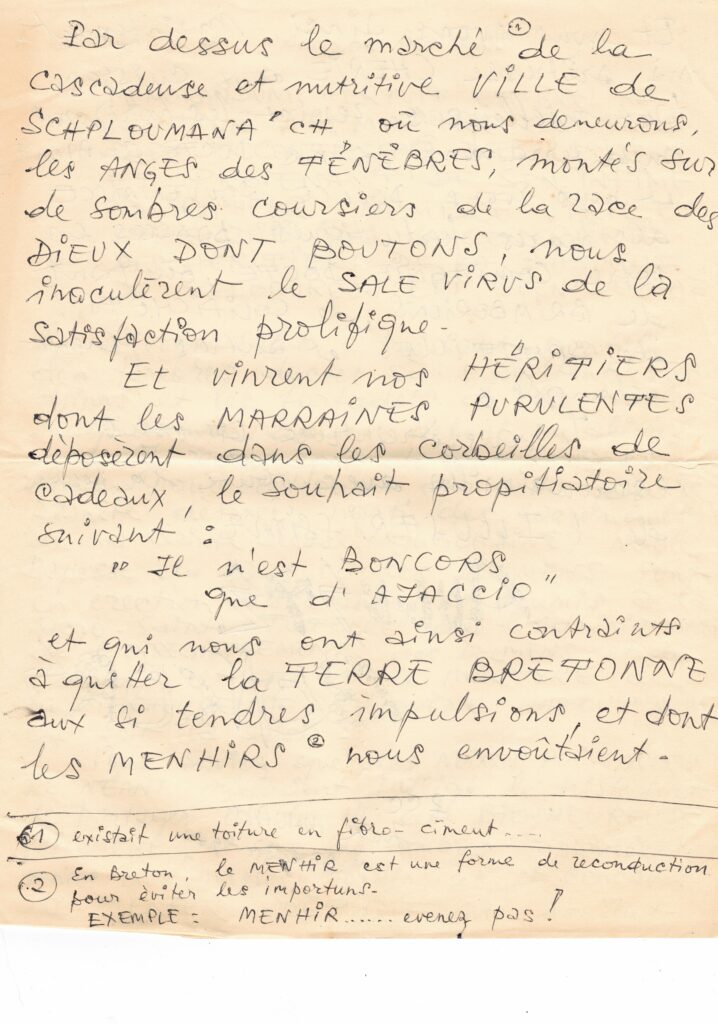 Par dessus le marché ① de la
cascadeuse et nutritive VILLE de
SCHPLOUMANA'CH où nous demeurons,
les ANGES des TÉNÈBRES, montés sur
de sombres coursiers de la race des
DIEUX DONT BOUTONS, nous
inoculèrent le SALE VIRUS de la
satisfaction prolifique.
Et vinrent nos HÉRITIERS
dont les MARRAINES PURULENTES
déposèrent dans les corbeilles de
cadeaux, le souhait propitiatoire
suivant :
" Il n'est BONCORS
que d'AJACCIO "
et qui nous ont ainsi contraints
à quitter la TERRE BRETONNE
aux si tendres impulsions, et dont
les MENHIRS ② nous envoûtaient.
① existait une toiture en fibro-ciment.....
② En Breton, le MENHIR est une forme de reconduction
pour éviter les importuns.
EXEMPLE = MENHIR......evenez pas !